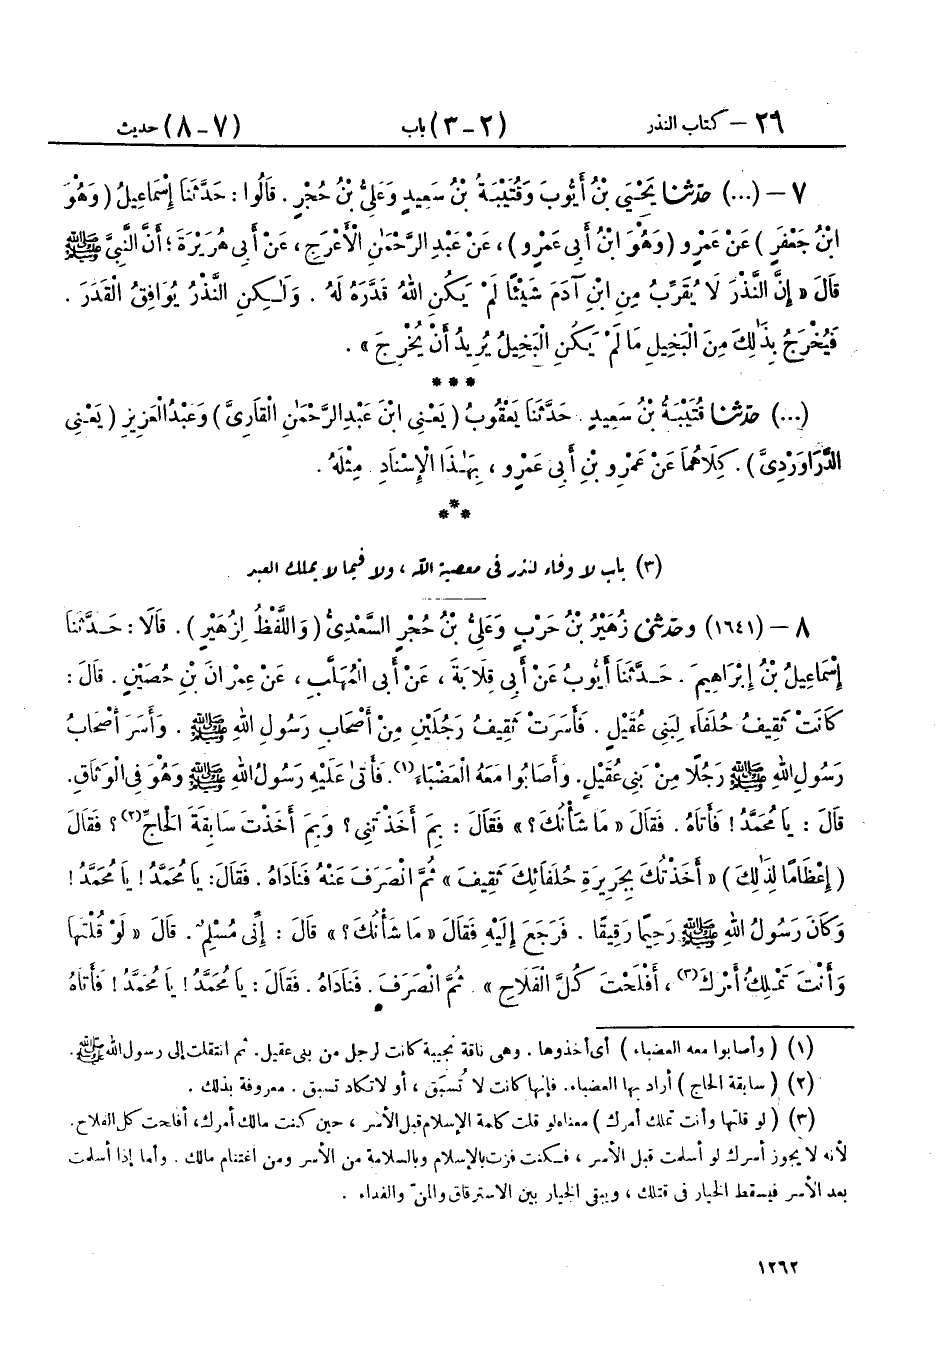 ٢٦ – كتاب النذر (٢ - ٣) باب (٧ - ٨) حديث
٧ – (...) حدّثنا يَحْيَى بْنُ أَيُّوبَ وَقُتَيْبَةُ بْنُ سَعِيدٍ وَعَلِيُّ بْنُ حُجْرٍ . قَالُوا : حَدَّثَنَا إِسْمَاعِيلُ ( وَهُوَ
ابْنُ جَعْفَرٍ ) عَنْ عَمْرٍو ( وَهُوَ ابْنُ أَبِي عَمْرٍو ) ، عَنْ عَبْدِ الرَّحْمَٰنِ الْأَعْرَجِ ، عَنْ أَبِي هُرَيْرَةَ ؛ أَنَّ النَّبِيَّ ﷺ
قَالَ « إِنَّ النَّذْرَ لَا يُقَرِّبُ مِنِ ابْنِ آدَمَ شَيْئًا لَمْ يَكُنِ اللهُ قَدَّرَهُ لَهُ . وَلَٰكِنِ النَّذْرُ يُوَافِقُ الْقَدَرَ .
فَيُخْرَجُ بِذَٰلِكَ مِنَ الْبَخِيلِ مَا لَمْ يَكُنِ الْبَخِيلُ يُرِيدُ أَنْ يُخْرِجَ » .
***
(...) حدّثنا قُتَيْبَةُ بْنُ سَعِيدٍ . حَدَّثَنَا يَعْقُوبُ ( يَعْنِي ابْنَ عَبْدِ الرَّحْمَٰنِ الْقَارِيَّ ) وَعَبْدُ الْعَزِيزِ ( يَعْنِي
الدَّرَاوَرْدِيَّ ) . كِلَاهُمَا عَنْ عَمْرِو بْنِ أَبِي عَمْرٍو ، بِهَٰذَا الْإِسْنَادِ مِثْلَهُ .
***
(٣) باب لا وفاء لنذر في معصية الله ، ولا فيما لا يملك العبد
٨ – (١٦٤١) وحدّثني زُهَيْرُ بْنُ حَرْبٍ وَعَلِيُّ بْنُ حُجْرٍ السَّعْدِيُّ ( وَاللَّفْظُ لِزُهَيْرٍ ) . قَالَا : حَدَّثَنَا
إِسْمَاعِيلُ بْنُ إِبْرَاهِيمَ . حَدَّثَنَا أَيُّوبُ عَنْ أَبِي قِلَابَةَ ، عَنْ أَبِي الْمُهَلَّبِ ، عَنْ عِمْرَانَ بْنِ حُصَيْنٍ . قَالَ :
كَانَتْ ثَقِيفُ حُلَفَاءَ لِبَنِي عُقَيْلٍ . فَأَسَرَتْ ثَقِيفُ رَجُلَيْنِ مِنْ أَصْحَابِ رَسُولِ اللهِ ﷺ . وَأَسَرَ أَصْحَابُ
رَسُولِ اللهِ ﷺ رَجُلًا مِنْ بَنِي عُقَيْلٍ . وَأَصَابُوا مَعَهُ الْعَضْبَاءَ(١). فَأَتَى عَلَيْهِ رَسُولُ اللهِ ﷺ وَهُوَ فِي الْوَثَاقِ.
قَالَ : يَا مُحَمَّدُ ! فَأَتَاهُ . فَقَالَ « مَا شَأْنُكَ ؟ » فَقَالَ : بِمَ أَخَذْتَنِي ؟ وَبِمَ أَخَذْتَ سَابِقَةَ الْحَاجِّ(٢) ؟ فَقَالَ
( إِعْظَامًا لِذَٰلِكَ ) « أَخَذْتُكَ بِجَرِيرَةِ حُلَفَائِكَ ثَقِيفَ » ثُمَّ انْصَرَفَ عَنْهُ فَنَادَاهُ . فَقَالَ : يَا مُحَمَّدُ ! يَا مُحَمَّدُ !
وَكَانَ رَسُولُ اللهِ ﷺ رَحِيمًا رَقِيقًا . فَرَجَعَ إِلَيْهِ فَقَالَ « مَا شَأْنُكَ ؟ » قَالَ : إِنِّي مُسْلِمٌ . قَالَ « لَوْ قُلْتَهَا
وَأَنْتَ تَمْلِكُ أَمْرَكَ(٣) ، أَفْلَحْتَ كُلَّ الْفَلَاحِ » . ثُمَّ انْصَرَفَ . فَنَادَاهُ . فَقَالَ : يَا مُحَمَّدُ ! يَا مُحَمَّدُ ! فَأَتَاهُ
(١) ( وأصابوا معه العضباء ) أي أخذوها . وهي ناقة نجيبة كانت لرجل من بني عقيل . ثم انتقلت إلى رسول الله ﷺ .
(٢) ( سابقة الحاج ) أراد بها العضباء . فإنها كانت لا تُسبَق ، أو لا تكاد تسبق . معروفة بذلك .
(٣) ( لو قلتها وأنت تملك أمرك ) معناه لو قلت كلمة الإسلام قبل الأسر ، حين كنت مالك أمرك ، أفلحت كل الفلاح .
لأنه لا يجوز أسرك لو أسلمت قبل الأسر ، فكنت فزت بالإسلام وبالسلامة من الأسر ومن اغتنام مالك . وأما إذا أسلمت
بعد الأسر فيسقط الخيار في قتلك ، ويبقى الخيار بين الاسترقاق والمنّ والفداء .
١٢٦٢